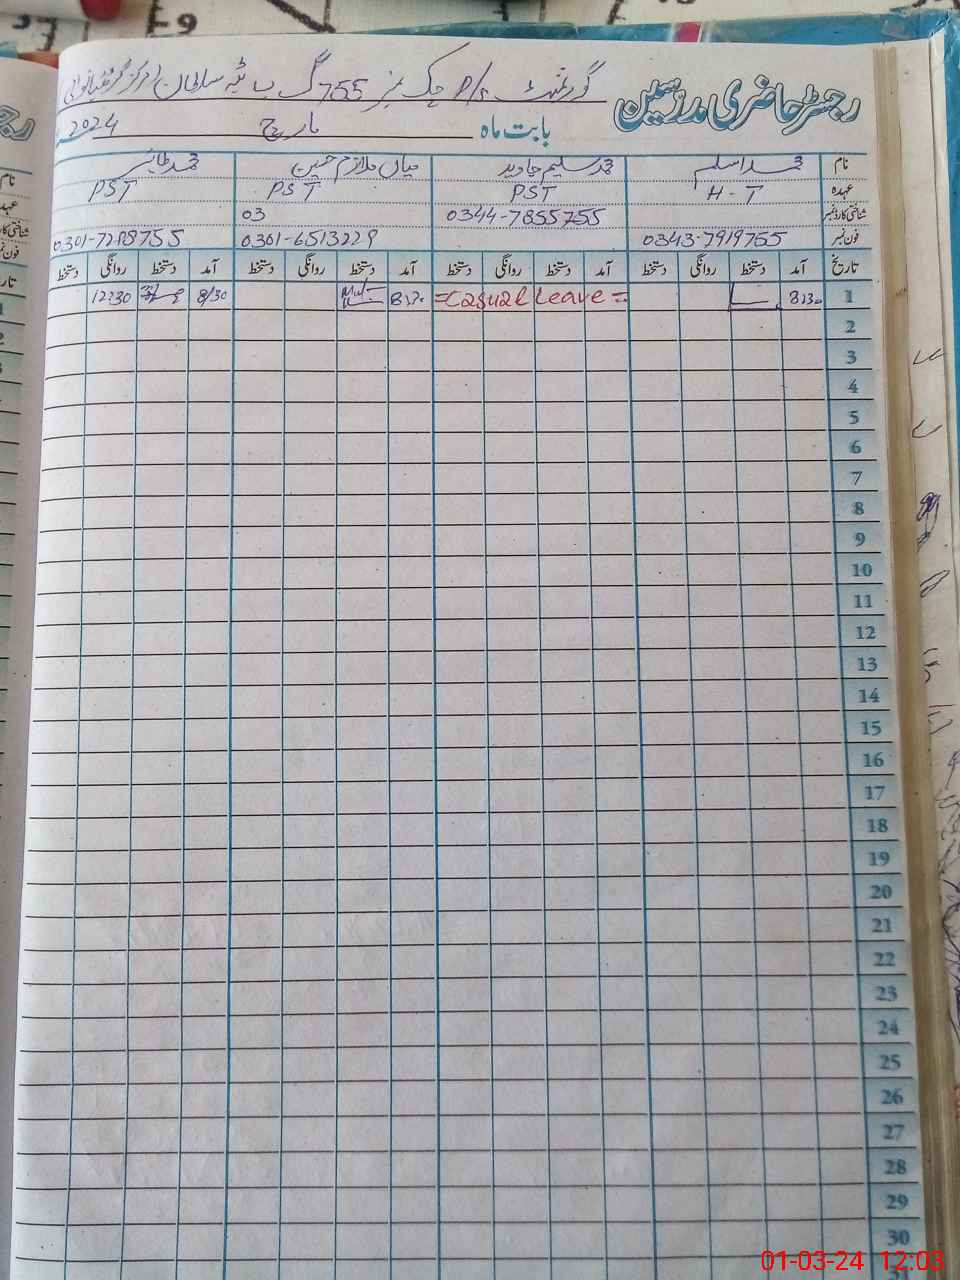 رجسٹر حاضری مدرسین گورنمنٹ P/S چک نمبر 755 گ ب
بابت ماہ مارچ 2024
نام محمد اسلم محمد سلیم جاوید میاں ملازم حسین محمد طاہر
عہدہ H-T PST PST PST
شناختی کارڈ نمبر 0344-7855755 03
فون نمبر 0343-7919755 0301-6513229 0301-7218755
تاریخ آمد دستخط روانگی دستخط آمد دستخط روانگی دستخط آمد دستخط روانگی دستخط آمد دستخط روانگی دستخط
1 8:30 =Casual Leave= 8:30 8/30 12:30
2
3
4
5
6
7
8
9
10
11
12
13
14
15
16
17
18
19
20
21
22
23
24
25
26
27
28
29
30
01-03-24 12:03